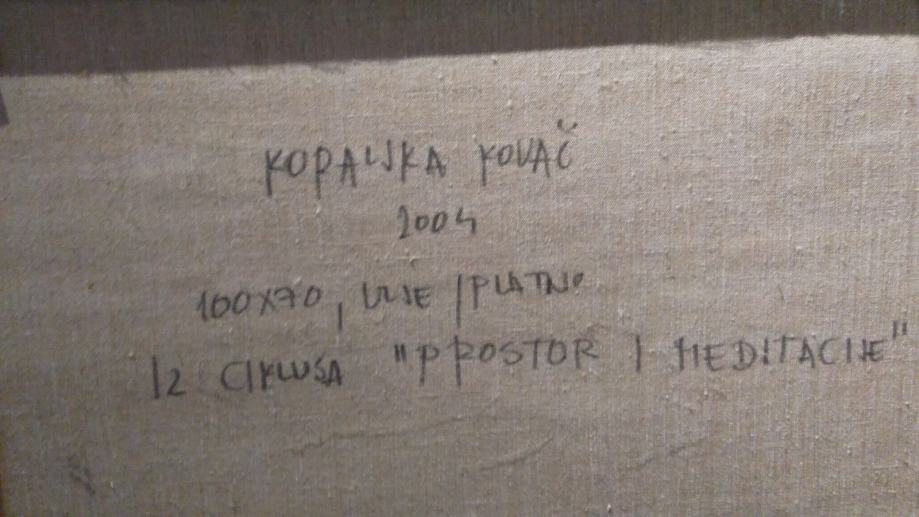 KORALJKA KOVAČ
2004
100X70, ULJE / PLATNO
IZ CIKLUSA "PROSTOR I MEDITACIJE"